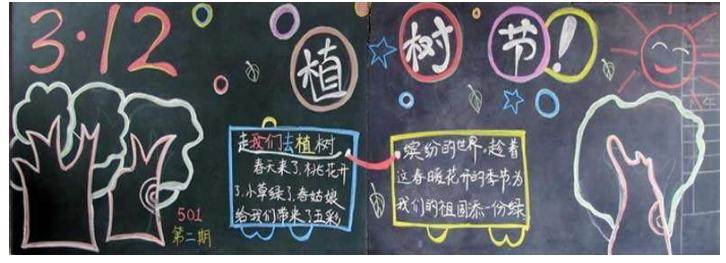 3·12
植树节!
走我们去植树
春天来了,桃花开
了,小草绿了,春姑娘
给我们带来了五彩
缤纷的世界,趁着
这春暖花开的季节为
我们的祖国添一份绿
501
第二期